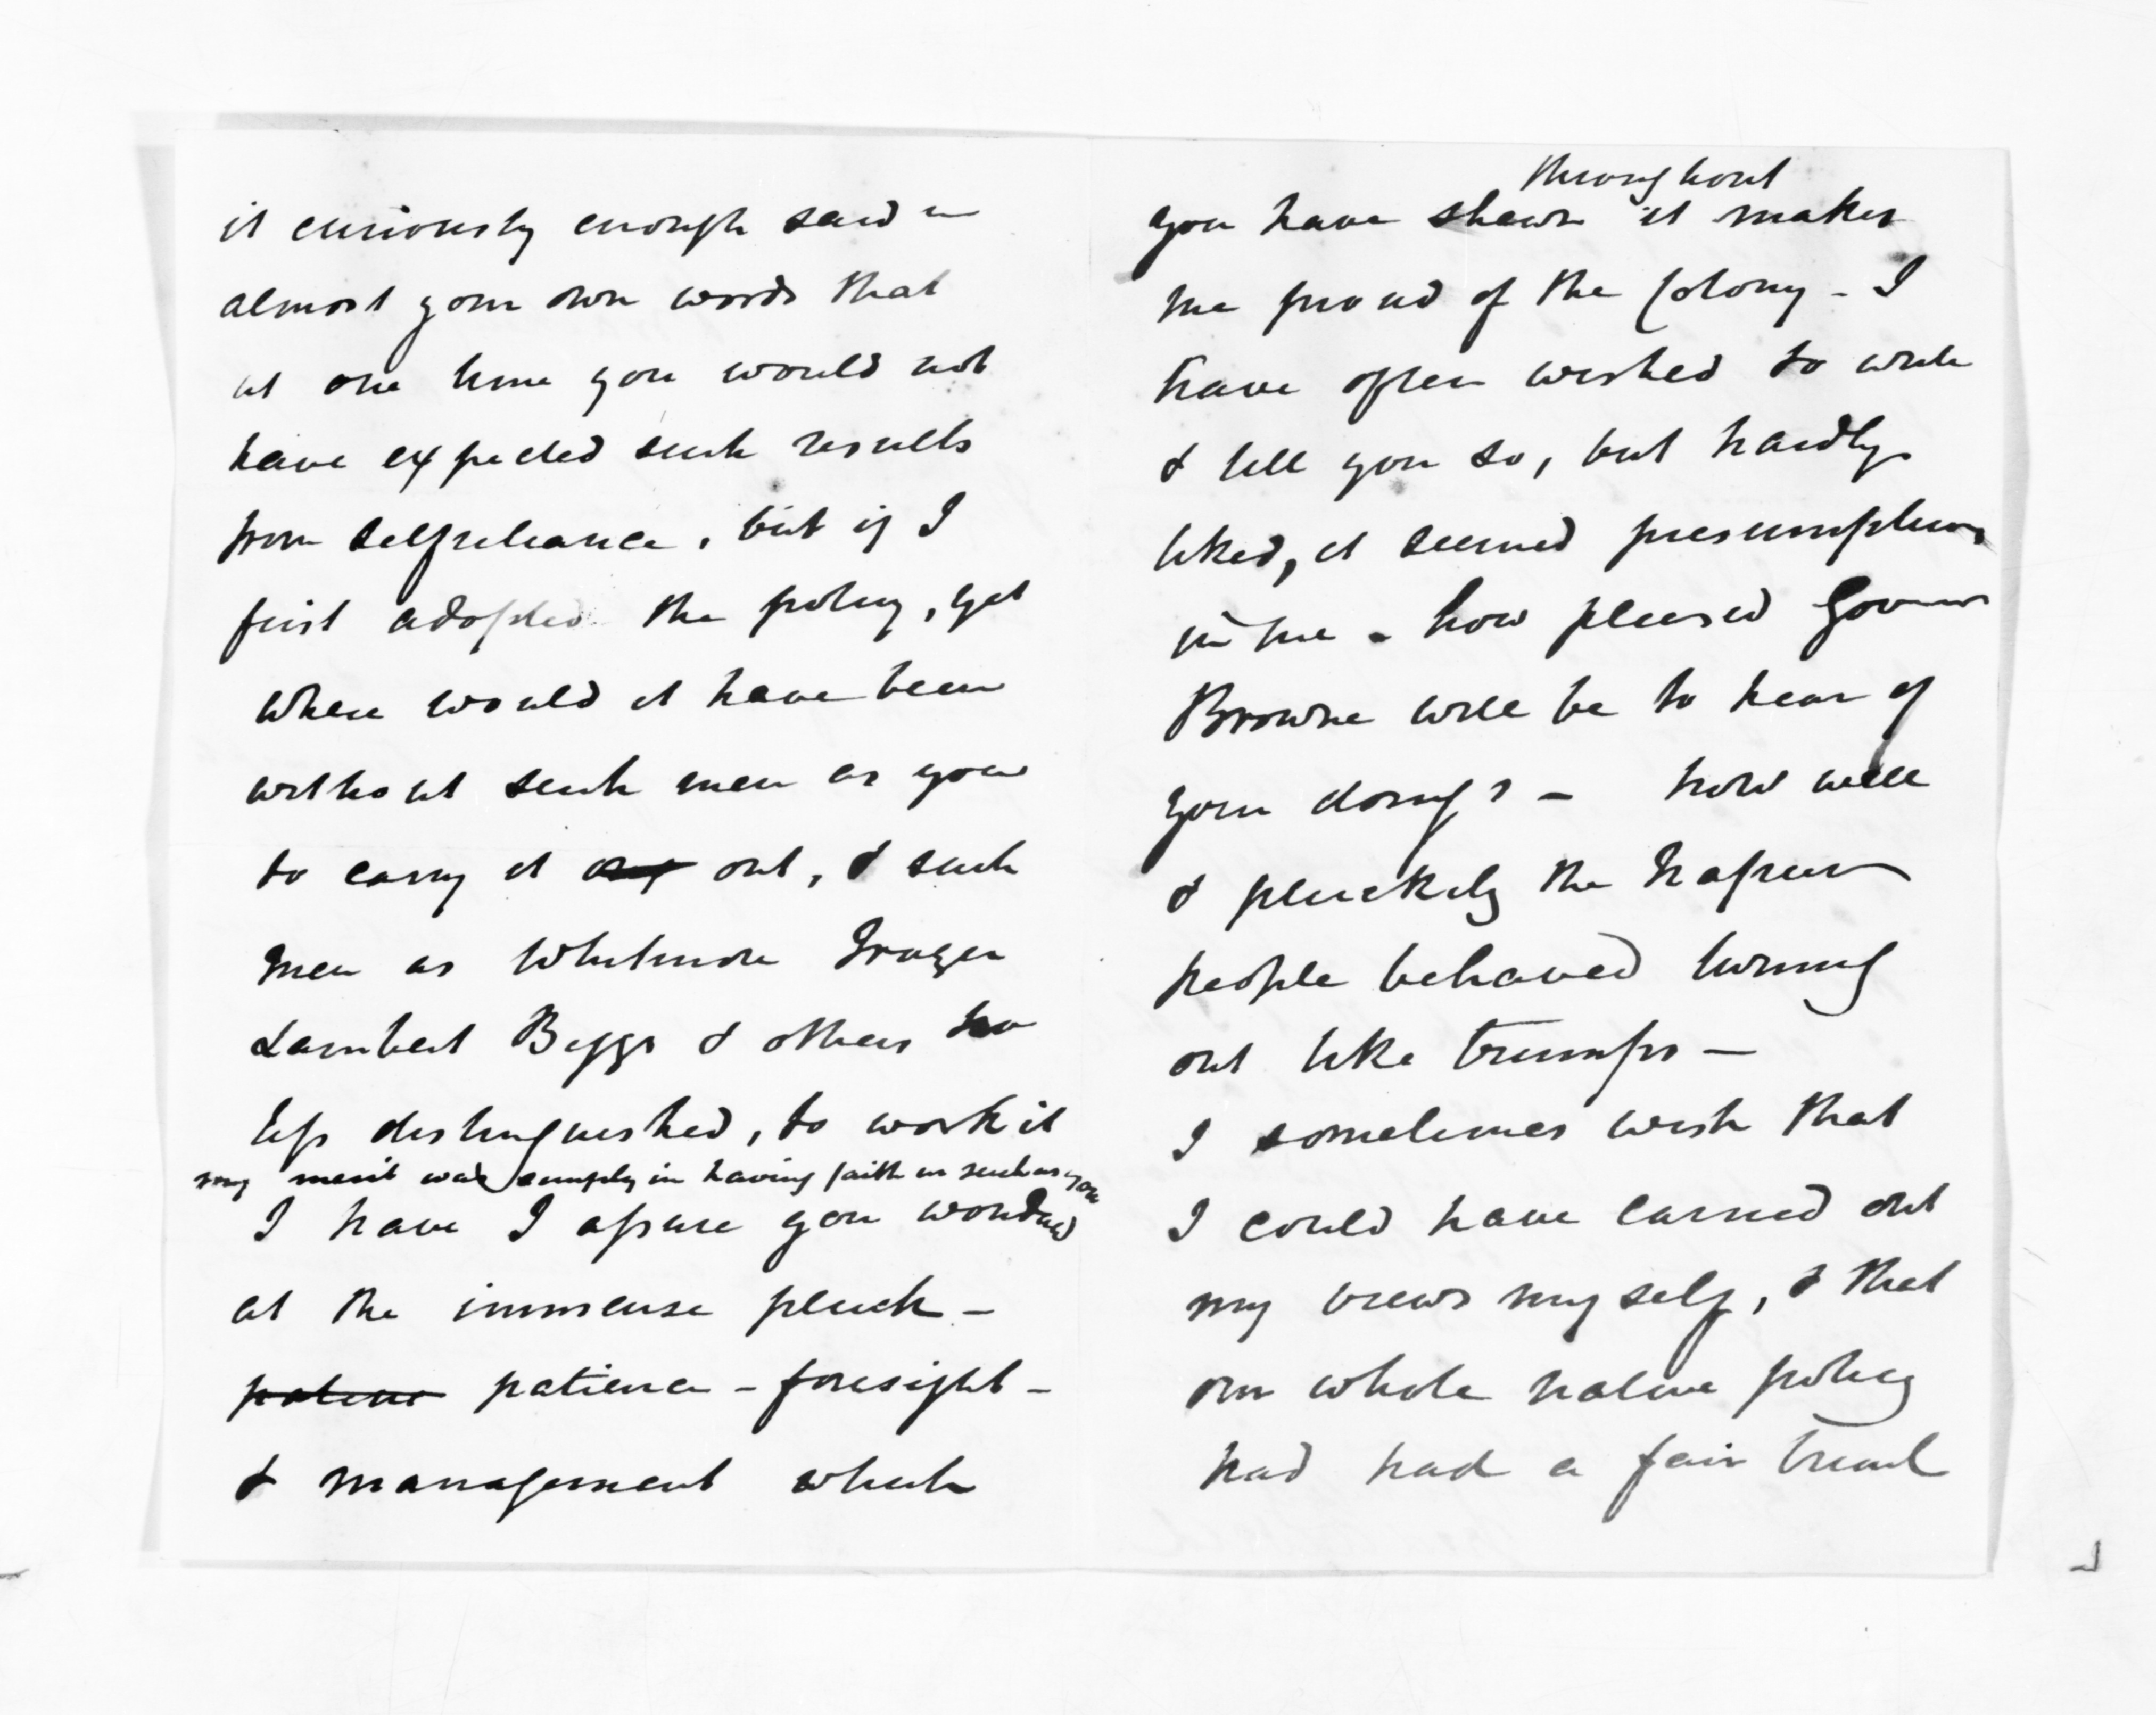 it curiously enough said in
almost your own words that
at one time you would not
have expected such results
from selfreliance, but if I
first adopted the policy, yet
where would it have been
without such men as you
to carry it out, & such
men as Whitmore Frazer
Lambert Biggs & others no
less distinguished, to work it
my merit was simply in having faith in such as you
I have I assure you wondered
at the immense pluck -
patience patience - foresight -
& management which
throughout
you have shewn it makes
me proud of the Colony - I
have often wished to write
& tell you so, but hardly
liked, it seemed presumptuous
in me - how pleased Governor
Browne will be to hear of
your doings - how well
& pluckily the Napier
people behaved turning
out like trumps -
I sometimes wish that
I could have carried out
my views myself, & that
our whole native policy
had had a fair trial